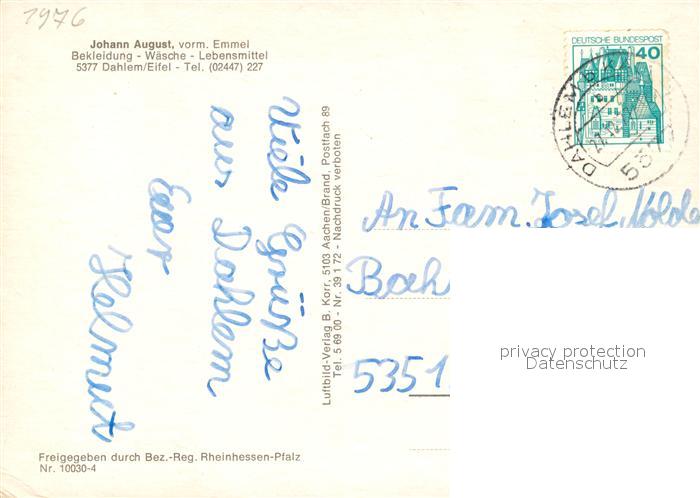 1976
Johann August, vorm. Emmel
Bekleidung - Wäsche - Lebensmittel
5377 Dahlem/Eifel - Tel. (02447) 227
DEUTSCHE BUNDESPOST
40
DAHLEM
Viele Grüße
aus Dahlem
Euer
Helmut
Luftbild-Verlag B. Korr, 5103 Aachen/Brand, Postfach 89
Tel. 5 69 00 - Nr. 39 1 72 - Nachdruck verboten
An Fam. Josef
5351
privacy protection
Datenschutz
Freigegeben durch Bez.-Reg. Rheinhessen-Pfalz
Nr. 10030-4